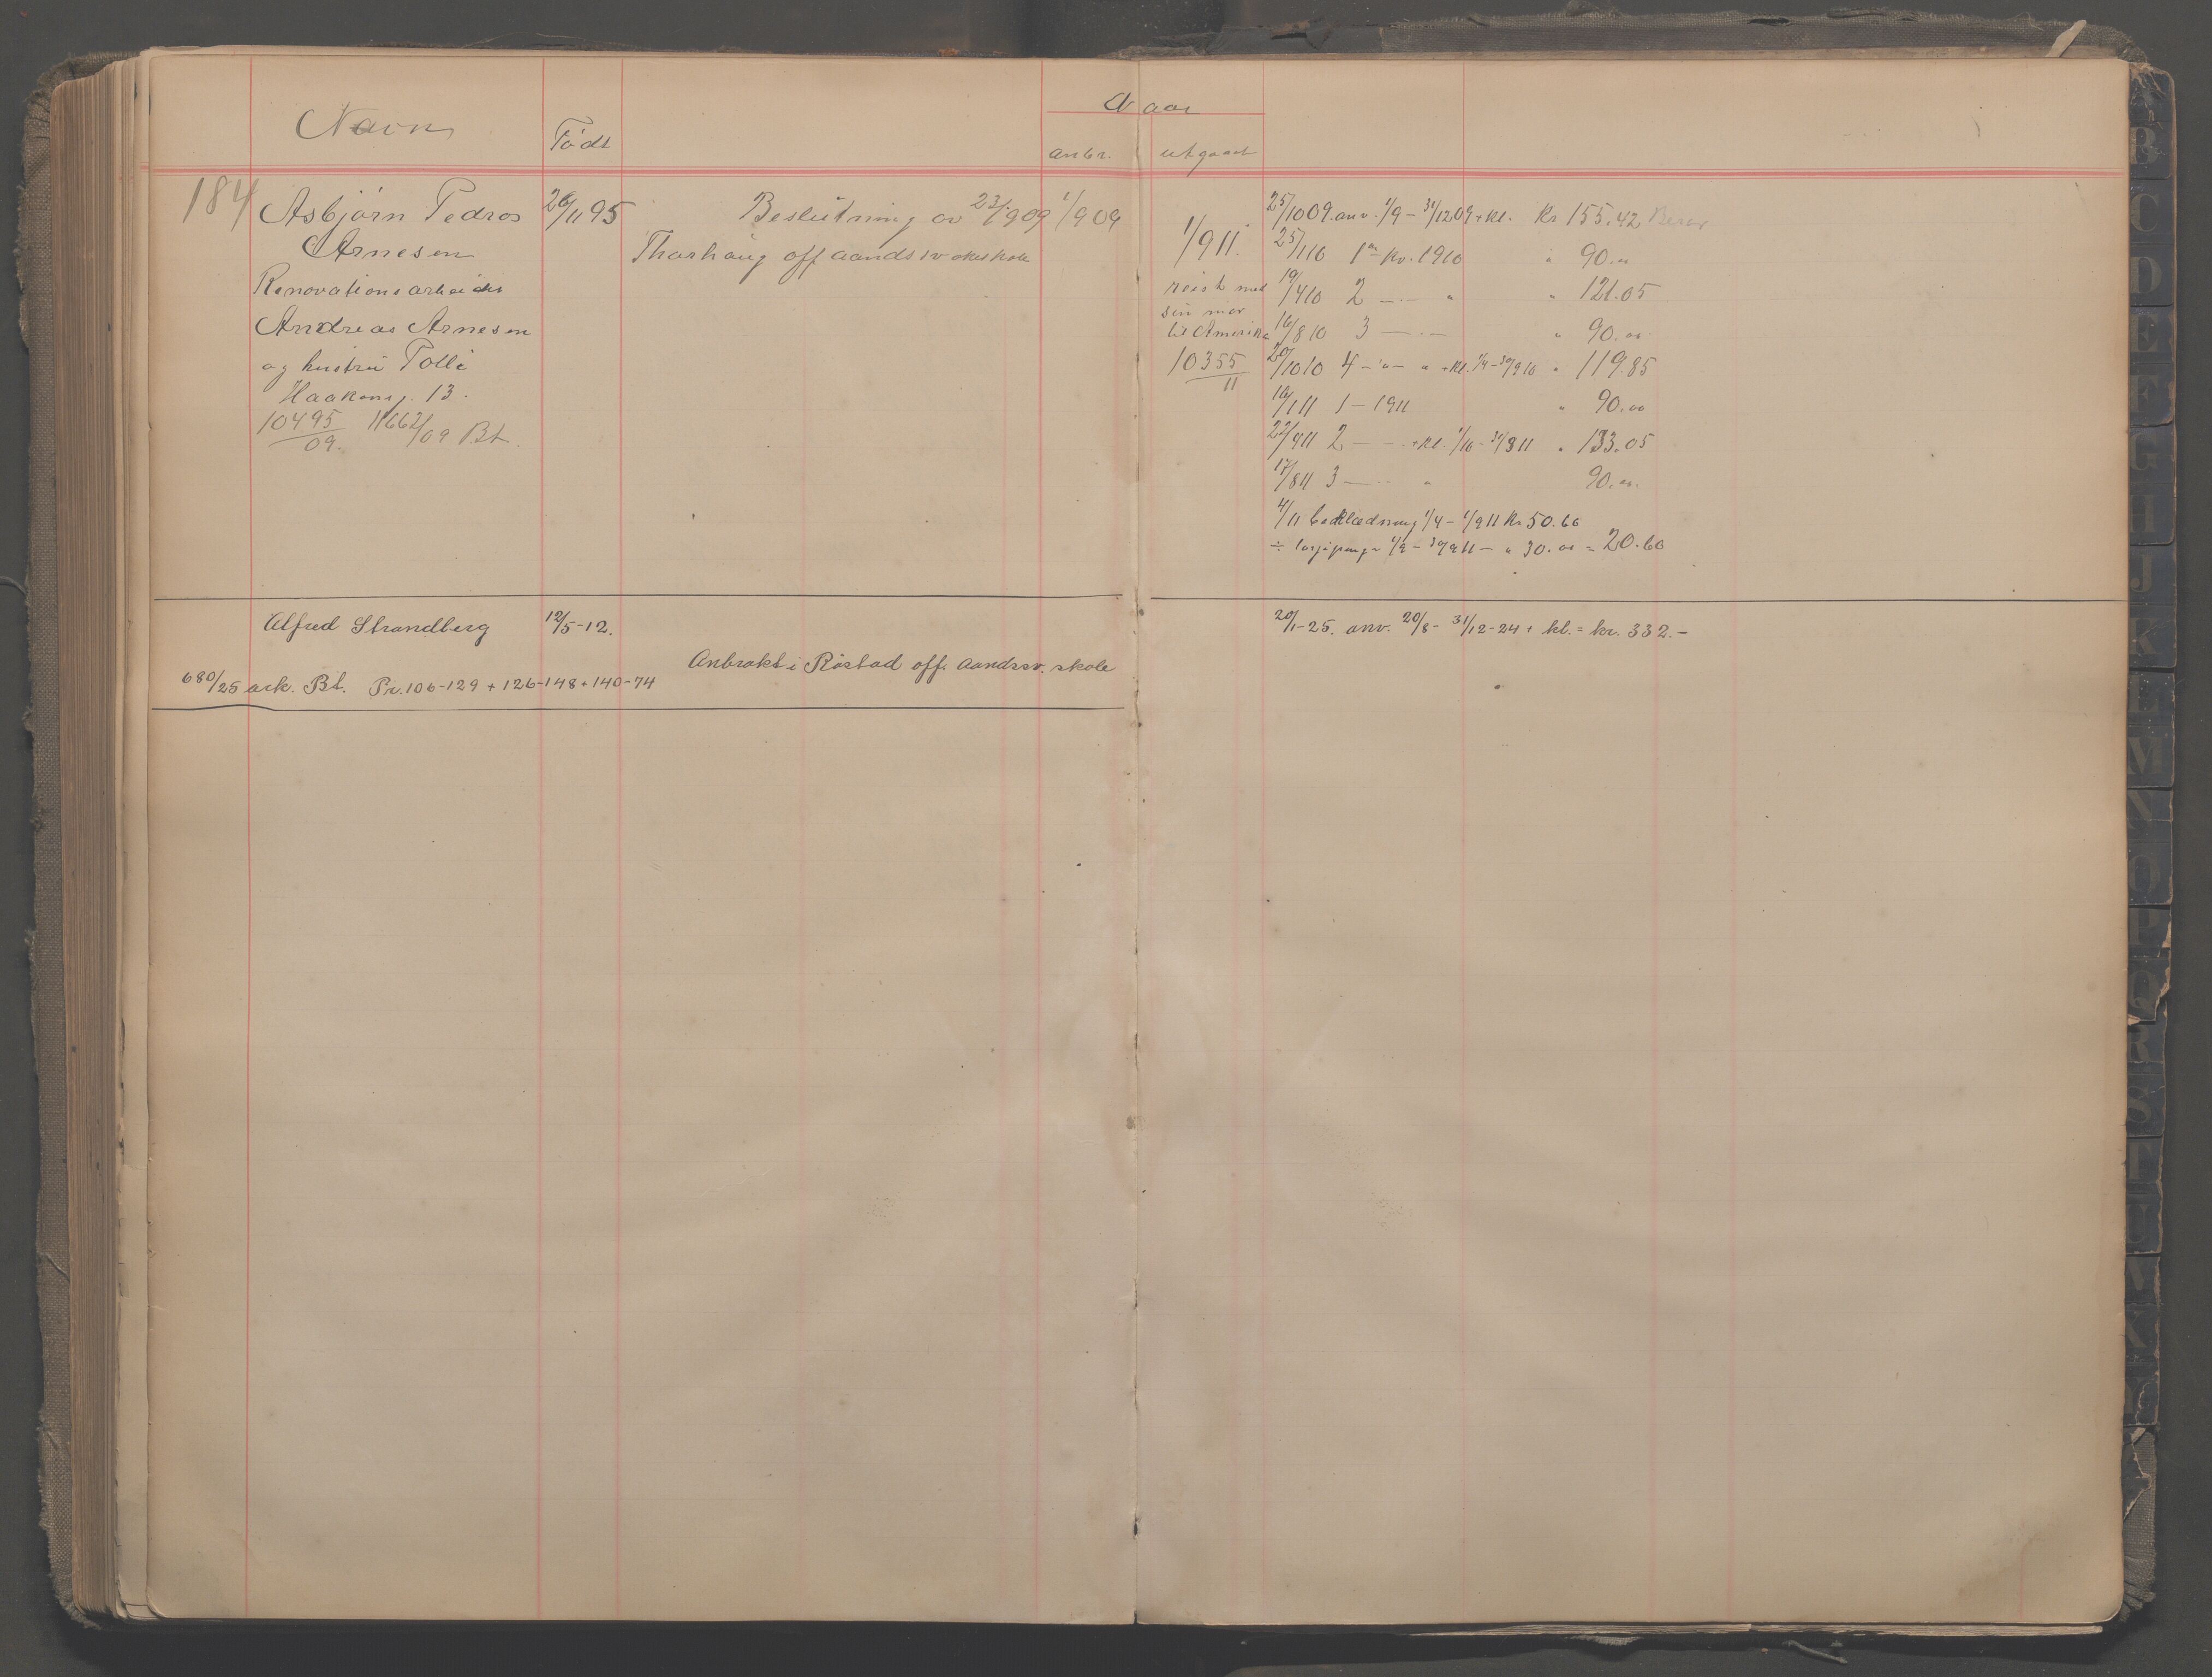 Navn
Født
Naar
anbr.
utgaaet
184
Asbjørn Pedros
Arnesen
Renovationsarbeider
Andreas Arnesen
og hustru Polli
Haakonsg. 13.
10495/09. 11662/09 Bt.
26/11 95
Beslutning av 23/9 09
Thorhaug off aandssvakeskole
1/9 09
1/9 11.
reist med
sin mor
til Amerika
10355/11
25/10 09. anv. 1/9 - 31/12 09 + kl. Kr 155.42
25/1 10 1ste kv. 1910 " 90.00
19/4 10 2 —.— " " 121.05
16/8 10 3 —.— " 90.00
20/10 10 4 —"— " + kl. 1/4 - 30/9 10 " 119.85
16/1 11 1 - 1911 " 90.00
22/4 11 2 — - + kl. 1/10 - 31/3 11 " 133.05
17/8 11 3 — " 90.00
4/11 beklædning 1/4 - 1/9 11 Kr 50.60
÷ 1/9 - 30/9 11 - " 30.00 = 20.60
Alfred Strandberg
12/5-12.
Anbrakt i Røstad off. aandssv. skole
680/25 ark. Bt. Pr. 106-129 + 126-148 + 140-74
20/1-25. anv. 20/8 - 31/12-24 + kl. = kr. 332.-
B
C
D
E
F
G
H
J
K
L
M
N
O
P
Q
R
S
T
U
V
X
Y